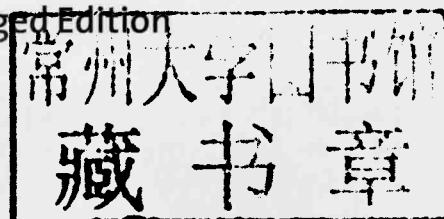 ged Edition
常州大学图书馆
藏书章